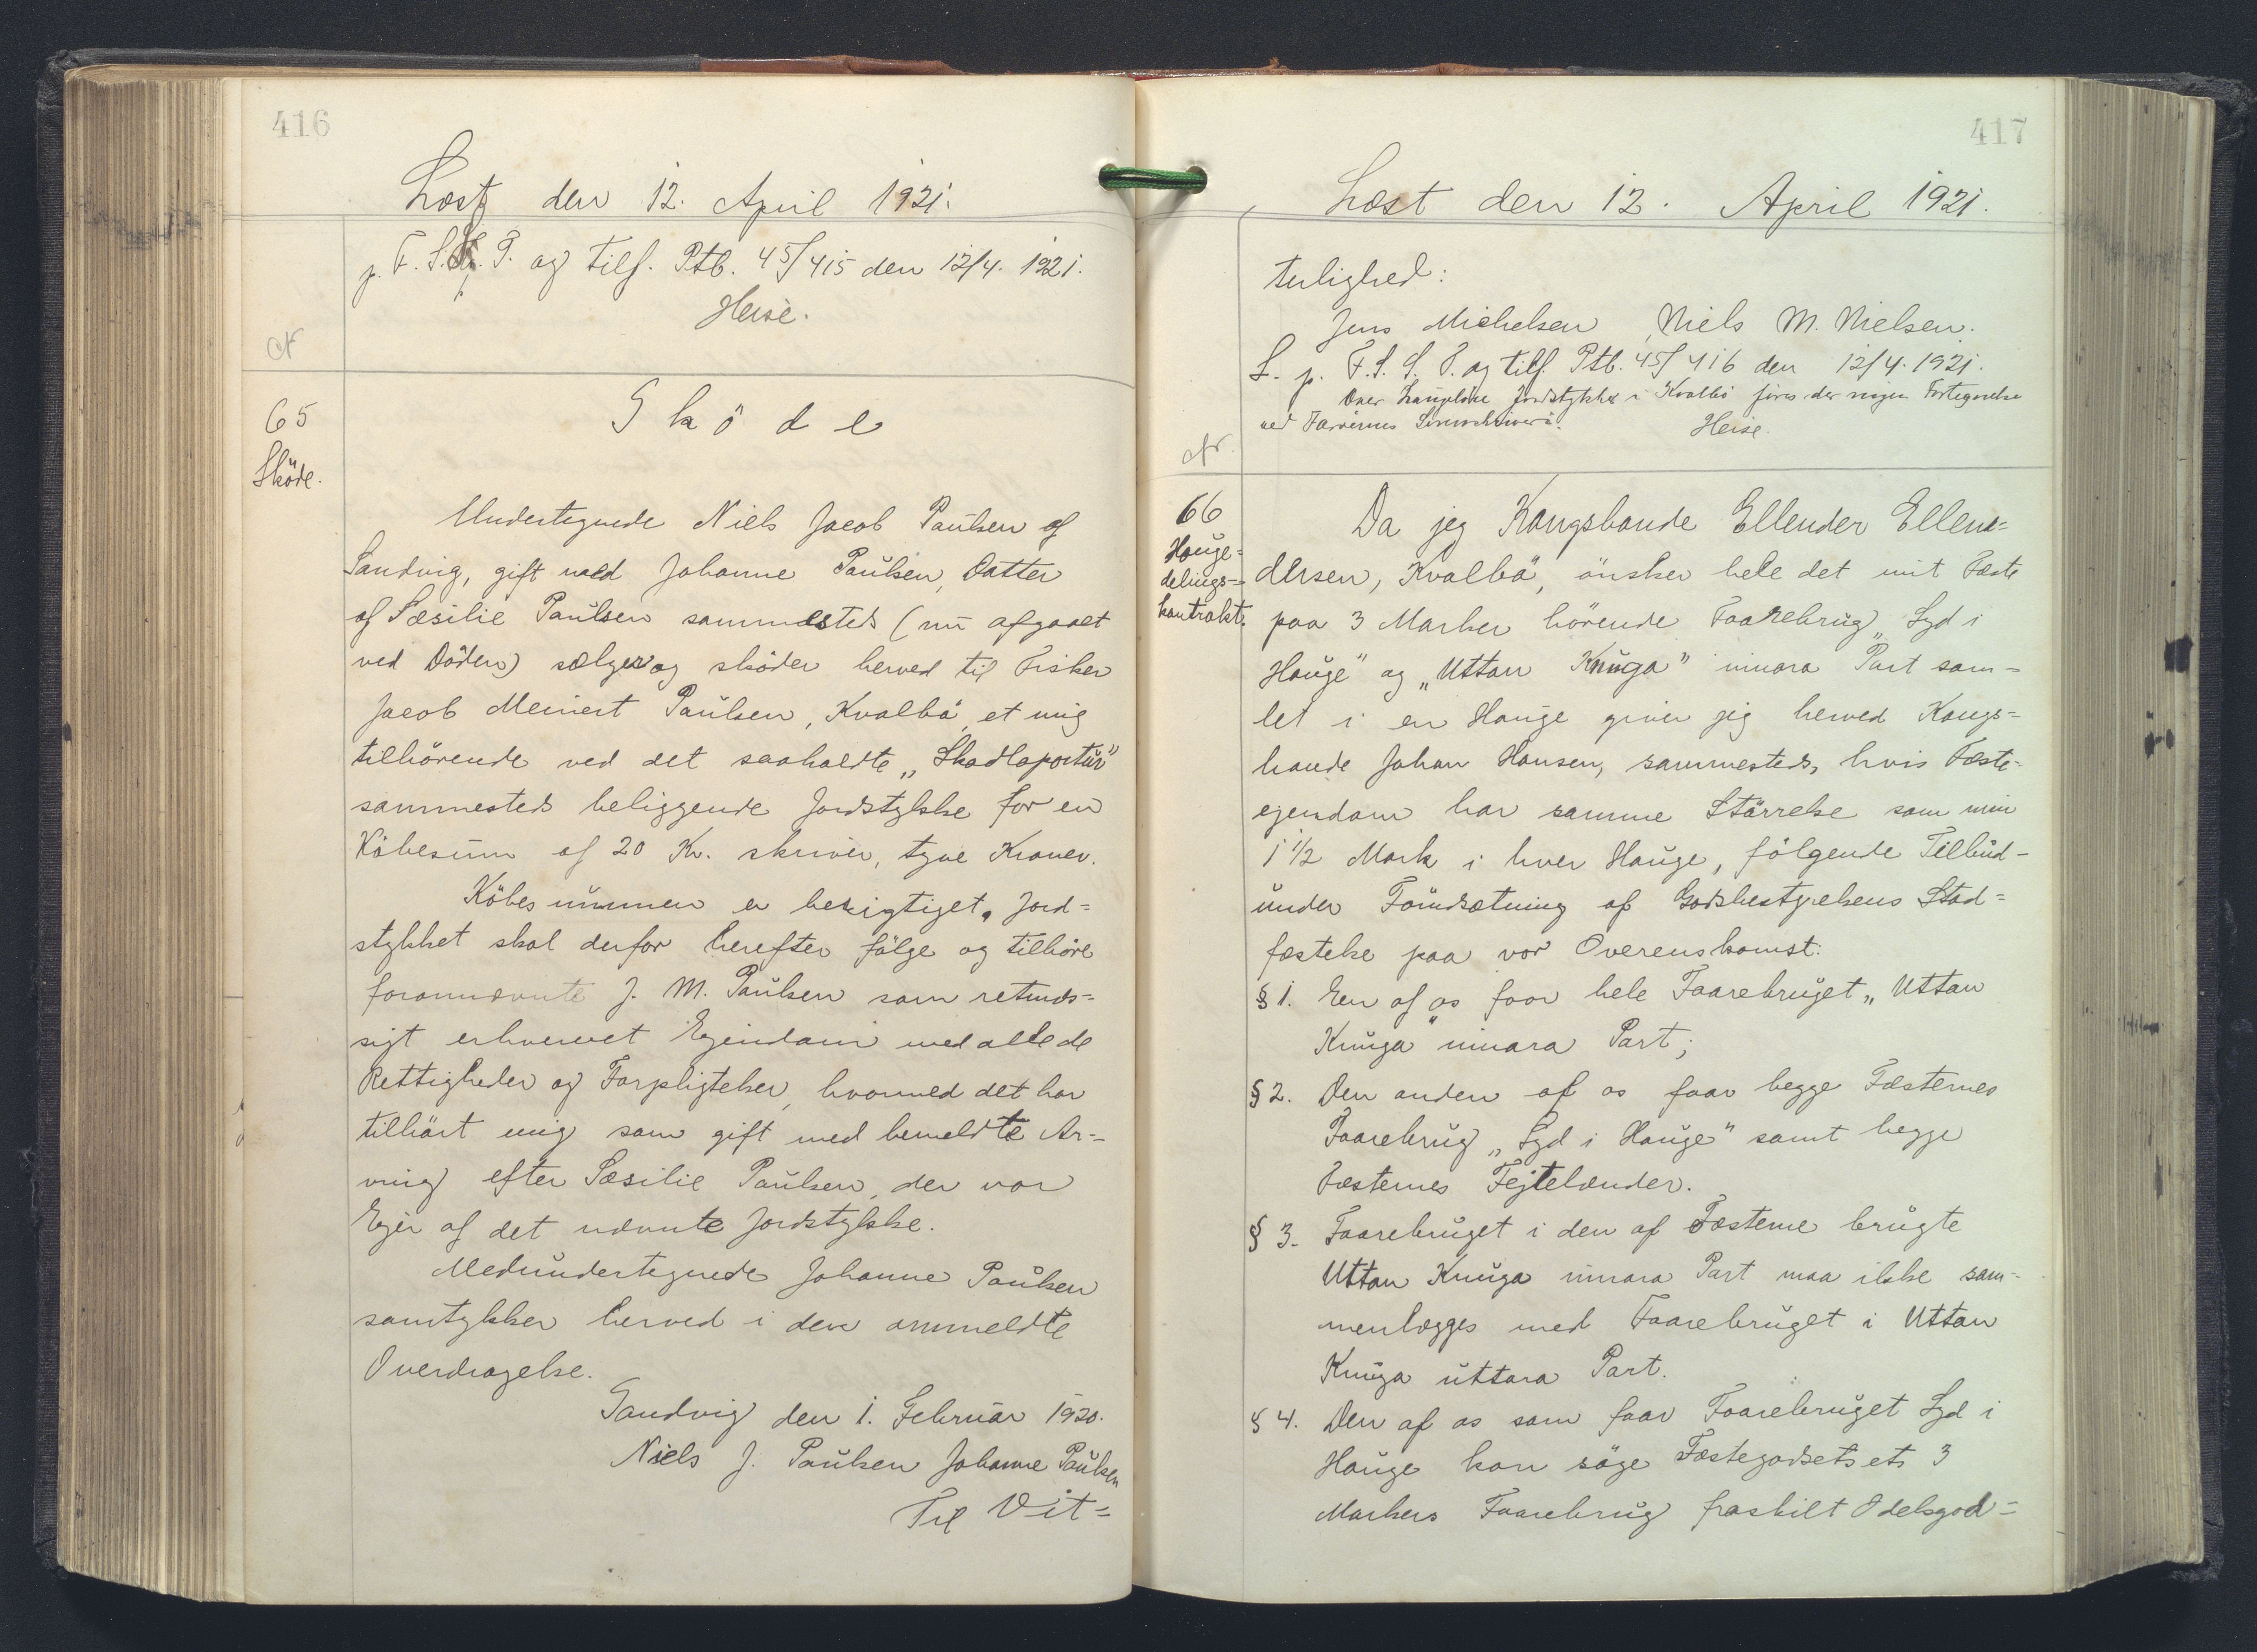 416
Læst den 12. April 1921.
p. F. S. S. P. og tilf. Ptb. 45/415 den 12/4. 1921.
Heise.
N
65
Sköde.
Sköde
Undertegnede Niels Jacob Paulsen af
Sandvig, gift med Johanne Paulsen, Datter
af Sæsilie Paulsen sammesteds (nu afgaaet
ved Döden) sælger og sköder herved til Fisker
Jacob Meinert Paulsen, Kvalbö, et mig
tilhörende ved det saakaldte „Skadlaportur"
sammesteds beliggende Jordstykke for en
Köbesum af 20 Kr. skriver, tyve Kroner.
Köbesummen er berigtiget. Jord=
stykket skal derfor herefter fölge og tilhöre
forannævnte J. M. Paulsen som retmæs=
sigt erhvervet Ejendom med alle de
Rettigheder og Forpligtelser, hvormed det har
tilhört mig som gift med bemeldte Ar=
ving efter Sæsilie Paulsen, der var
Ejer af det nævnte Jordstykke.
Medundertegnede Johanne Paulsen
samtykker herved i den ommeldte
Overdragelse.
Sandvig den 1. Februar 1920.
Niels J. Paulsen Johanne Paulsen
Til Vit=
417
Læst den 12. April 1921.
terlighed:
Jens Michelsen, Niels M. Nielsen.
L. p. F. S. S. P. og tilf. Ptb. 45/416 den 12/4. 1921.
Over Jordstykker i Kvalbö föres der ingen Fortegnelse
ved Færöernes Sorenskriveri.
Heise.
Nr.
66
Hauge=
delings=
kontrakt.
Da jeg Kongsbonde Ellender Ellen=
dersen, Kvalbö, önsker hele det mit Fæste
paa 3 Marker hörende Faarebrug „Syd i
Hauge" og „Uttan Knuga" innara Part sam=
let i en Hauge giver jeg herved Kongs=
bonde Johan Hansen, sammesteds, hvis Fæste-
ejendom har samme Störrelse som min
1 1/2 Mark i hver Hauge, fölgende Tilbud-
under Forudsætning af Godsbestyrelsens Stad=
fæstelse paa vor Overenskomst:
§ 1. Een af os faar hele Faarebruget „Uttan
Knuga" innara Part;
§ 2. Den anden af os faar begge Fæsternes
Faarebrug „Syd i Hauge" samt begge
Fæsternes Fejtelænder.
§ 3. Faarebruget i den af Fæsterne brugte
Uttan Knuga innara Part maa ikke sam-
menlægges med Faarebruget i Uttan
Knuga uttara Part.
§ 4. Den af os som faar Faarebruget Syd i
Hauge kan söge Fæstegodsets ets 3
Markers Faarebrug fraskilt Odelsgod=